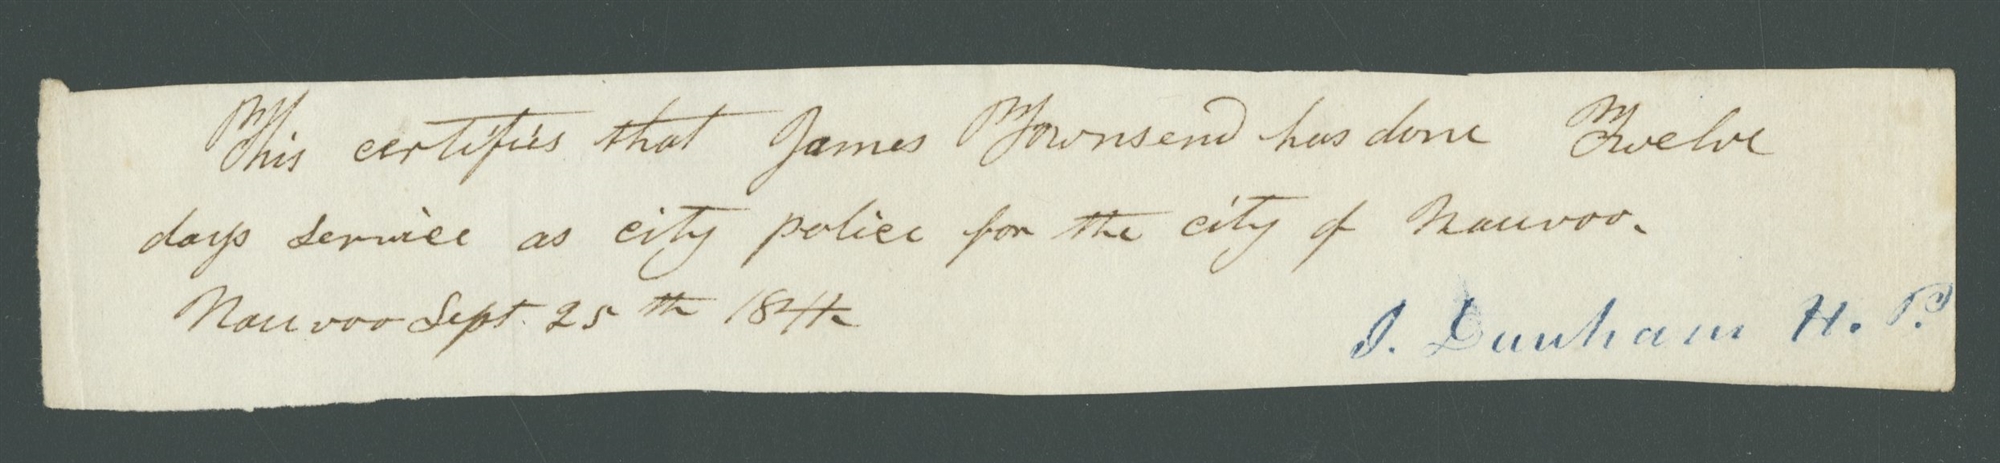 This certifies that James Townsend has done Twelve
days service as city police for the city of Nauvoo.
Nauvoo Sept. 25th 1844
J. Dunham H. P.